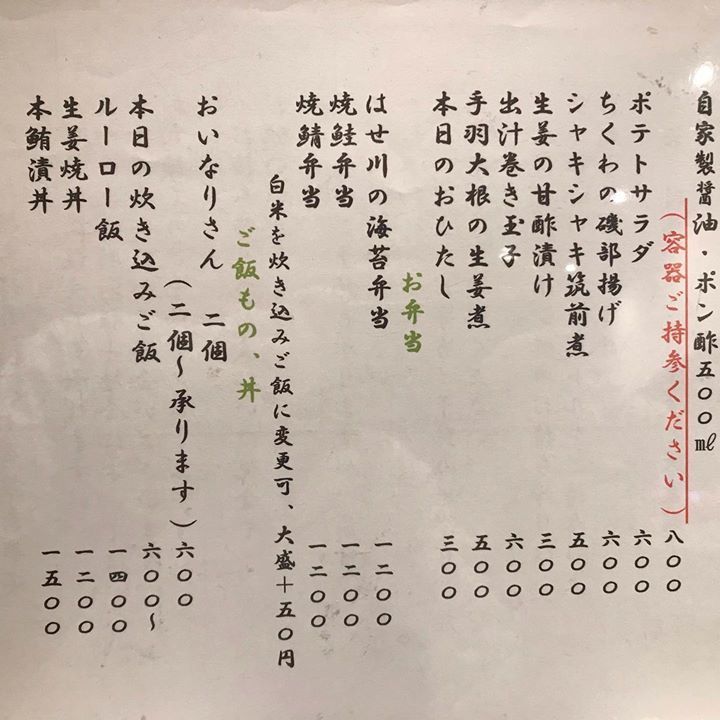 自家製醤油・ポン酢五〇〇㎖
(容器ご持参ください) 八〇〇
ポテトサラダ 六〇〇
ちくわの磯部揚げ 六〇〇
シャキシャキ筑前煮 五〇〇
生姜の甘酢漬け 三〇〇
出汁巻き玉子 六〇〇
手羽大根の生姜煮 五〇〇
本日のおひたし 三〇〇
お弁当
はせ川の海苔弁当 一二〇〇
焼鮭弁当 一二〇〇
焼鯖弁当 一二〇〇
白米を炊き込みご飯に変更可、大盛+五〇円
ご飯もの、丼
おいなりさん 二個
(二個〜承ります) 六〇〇
本日の炊き込みご飯 六〇〇〜
ルーロー飯 一四〇〇
生姜焼丼 一二〇〇
本鮪漬丼 一五〇〇